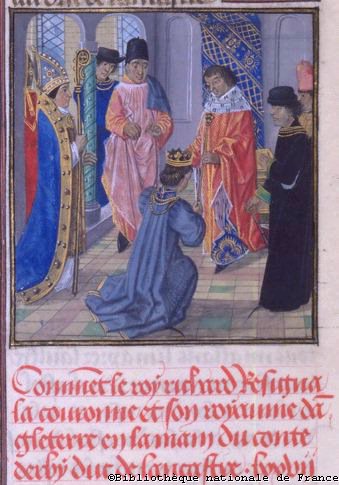 Comment le roy richard Resigna
la couronne et son royaume dā
gleterre en la main du conte
derby duc de lancastre. lxviij
©Bibliothèque nationale de France